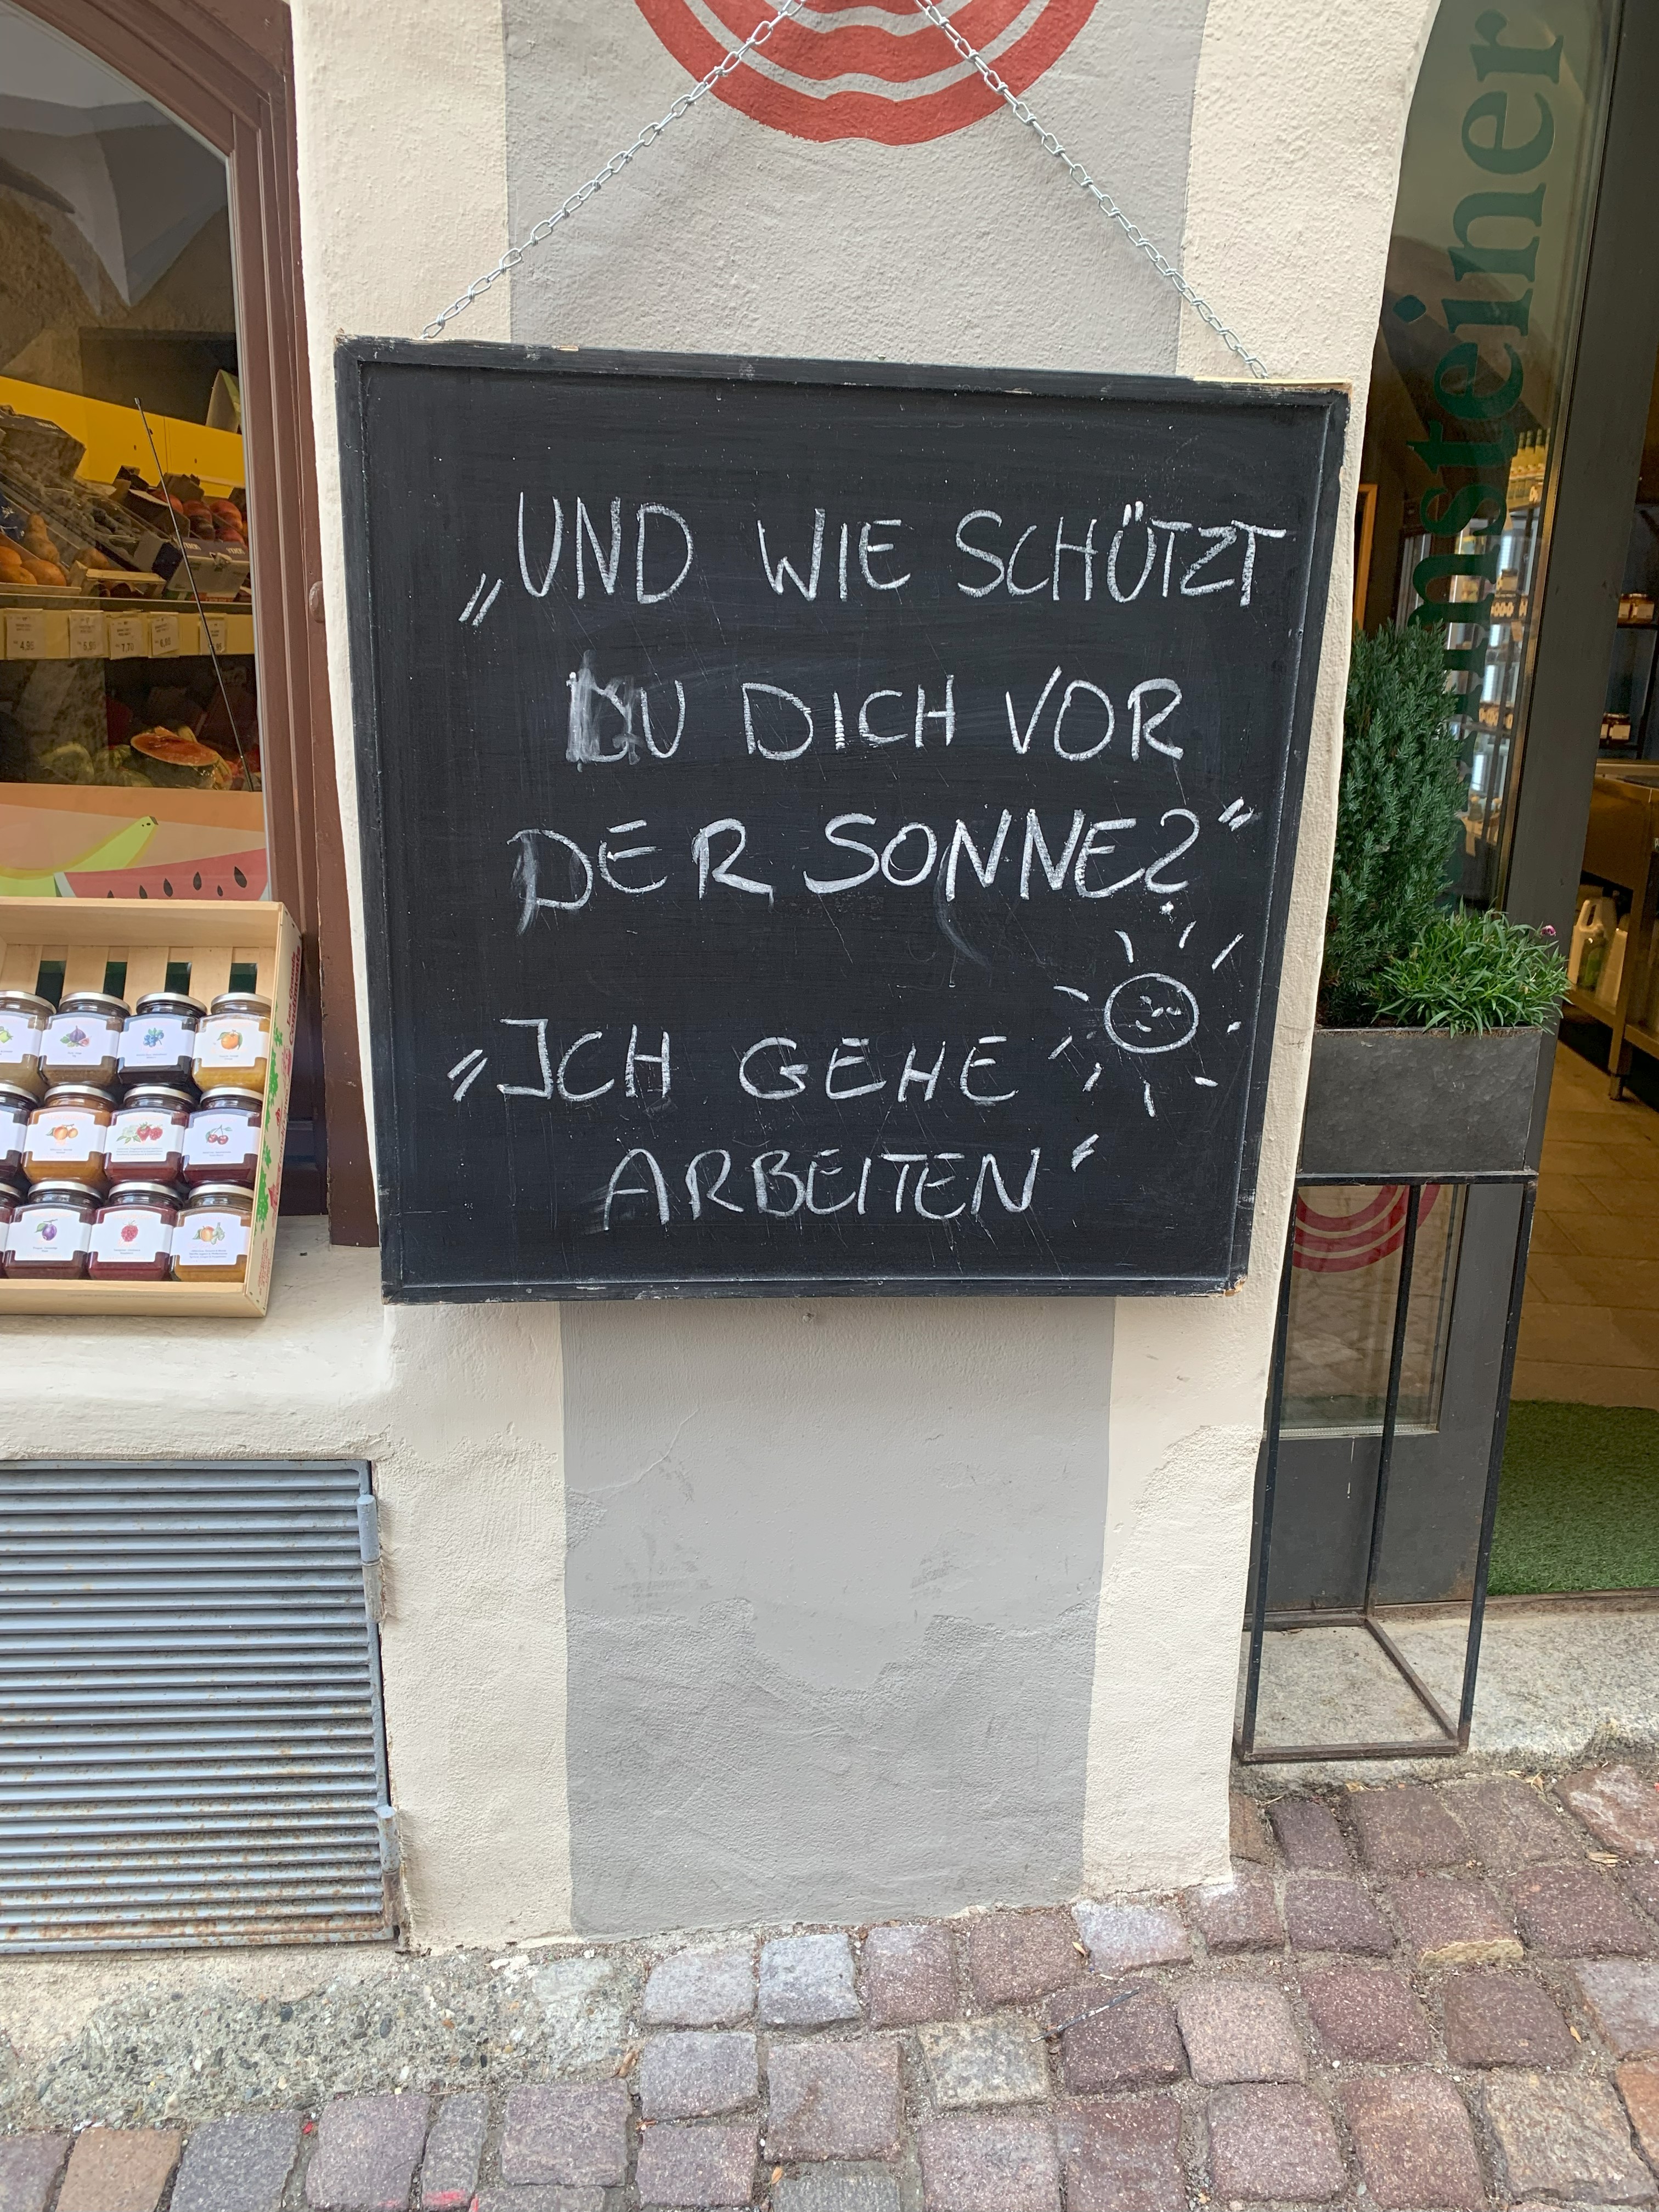 „UND WIE SCHÜTZT
DU DICH VOR
DER SONNE?“
„ICH GEHE
ARBEITEN“